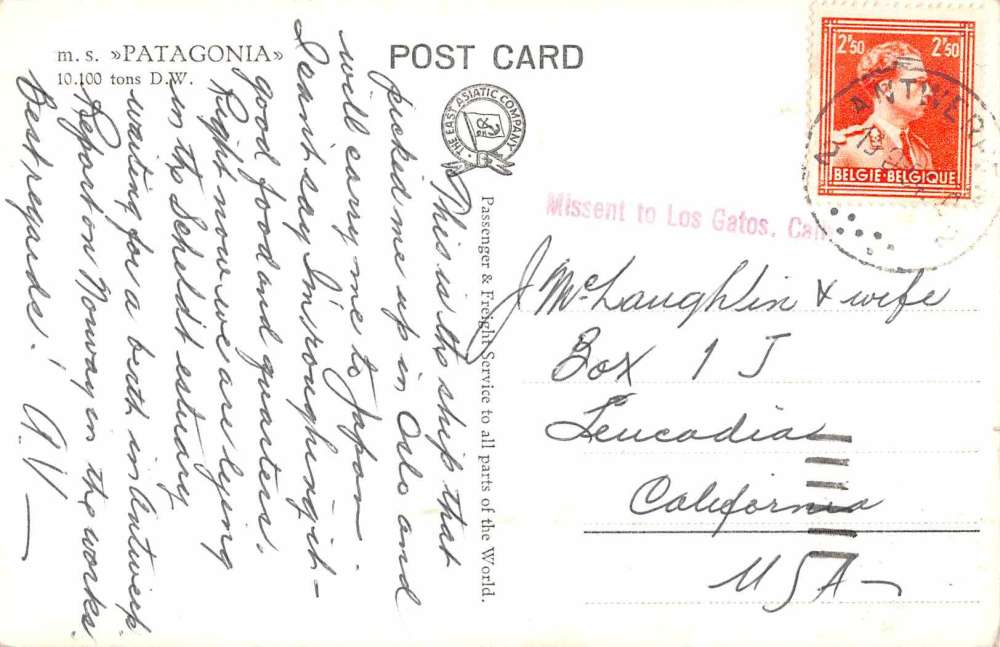 m. s. »PATAGONIA»
10.100 tons D.W.
POST CARD
THE EAST ASIATIC COMPANY
This is the ship that
picked me up in Oslo and
will carry me to Japan
I cannit say I'm roughing it -
good food and quarters.
Right now we are lying
in the Scheldt estuary
waiting for a berth in Antwerp
Report on Norway in the works.
Best regards!
A.V
Passenger & Freight Service to all parts of the World.
2F50
2F50
BELGIE-BELGIQUE
ANTWERPEN
Missent to Los Gatos, Calif
J McLaughlin & wife
Box 1 J
Leucadia
California
USA